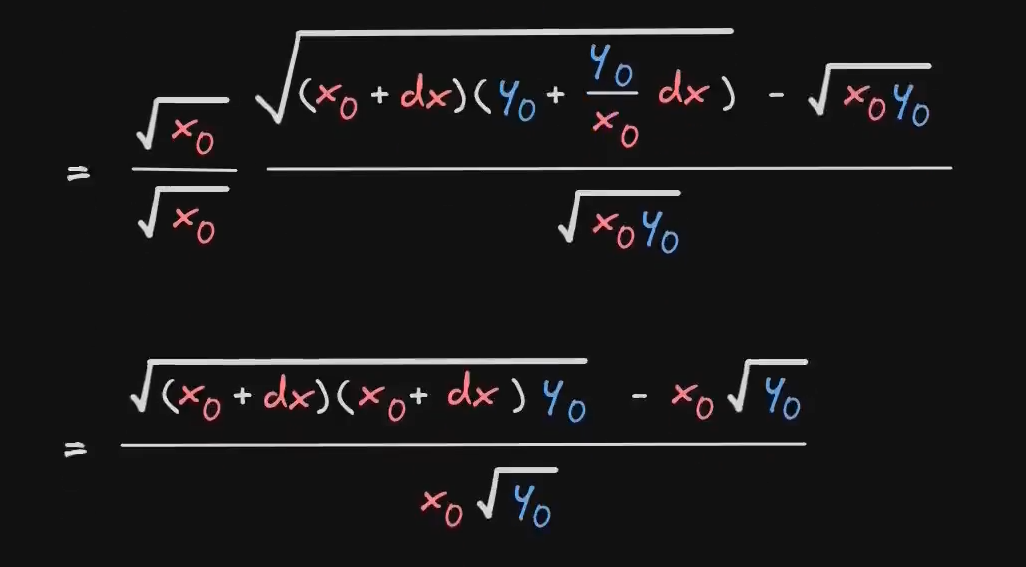 = √x₀/√x₀ (√((x₀ + dx)(y₀ + y₀/x₀ dx)) - √(x₀y₀))/√(x₀y₀)
= (√((x₀ + dx)(x₀ + dx)y₀) - x₀√y₀)/(x₀√y₀)